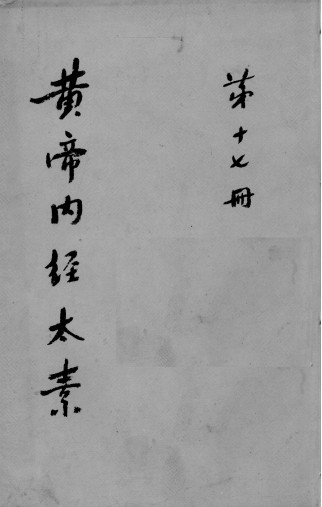 第十七冊
黄啼内经太素